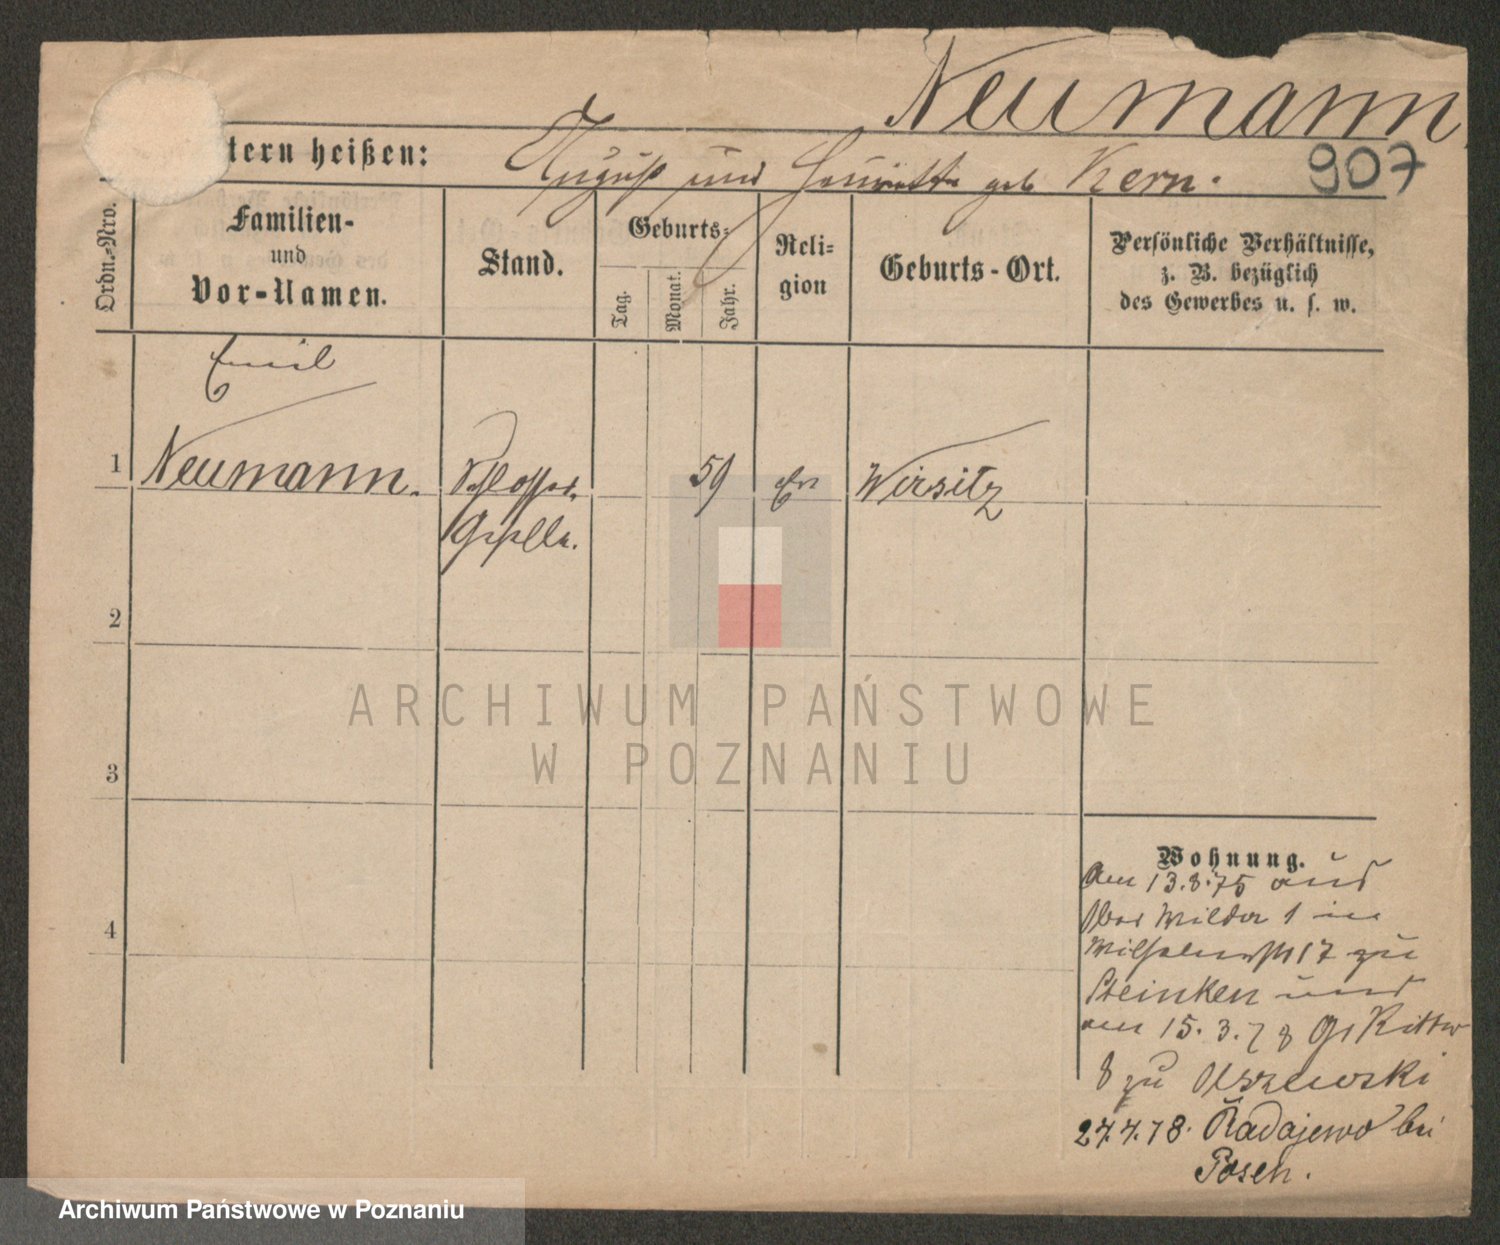 Neumann
tern heißen: August und Henriette geb Kern.
907
Ordn.-Nro.
Familien-
und
Vor-Namen.
Stand.
Geburts-
Tag.
Monat.
Jahr.
Reli-
gion
Geburts-Ort.
Persönliche Verhältnisse,
z. B. bezüglich
des Gewerbes u. s. w.
Emil
1 Neumann. Schlosser 59 Ev Wirsitz
Geselle.
2
3
4
ARCHIWUM PAŃSTWOWE
W POZNANIU
Wohnung.
Am 13.8.75 aus
Ober Wilda 1 in
Wilhelmstr 17 zu
Steinken und
am 15.3.78 Gr Ritter
8 zu Olszewski
27.4.78. Radajewo bei
Posen.
Archiwum Państwowe w Poznaniu